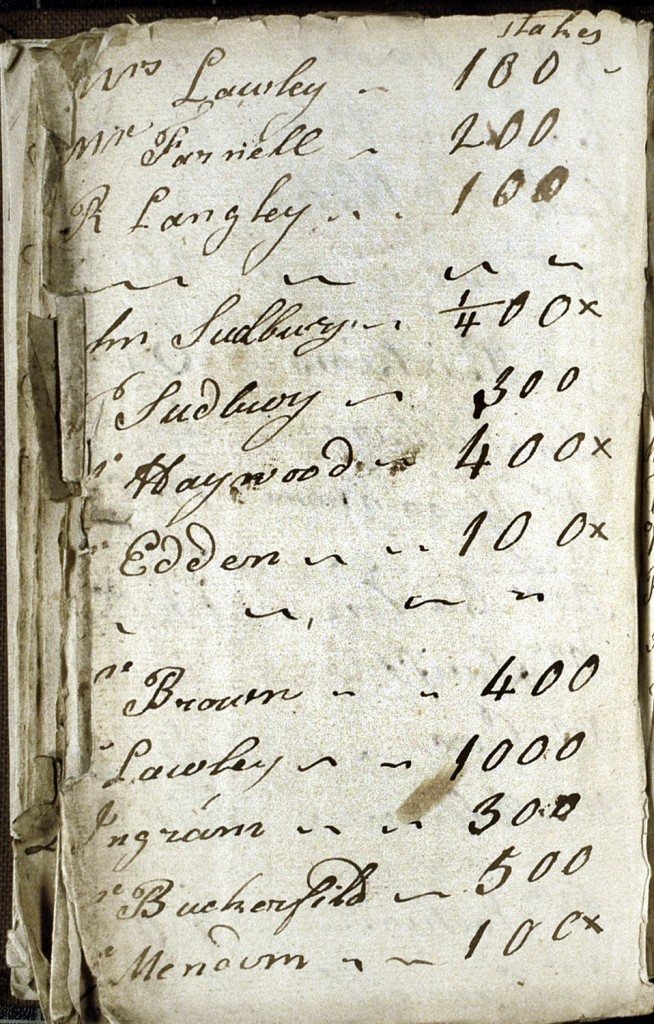 stakes
Mrs Lawley 100
Mr Farnell 200
R Langley 100
Sudbury 1/400x
Sudbury 300
Haywood 400x
Edden 100x
Brown 400
Lawley 1000
Ingram 300
Buckerfild 500
Mendum 100x